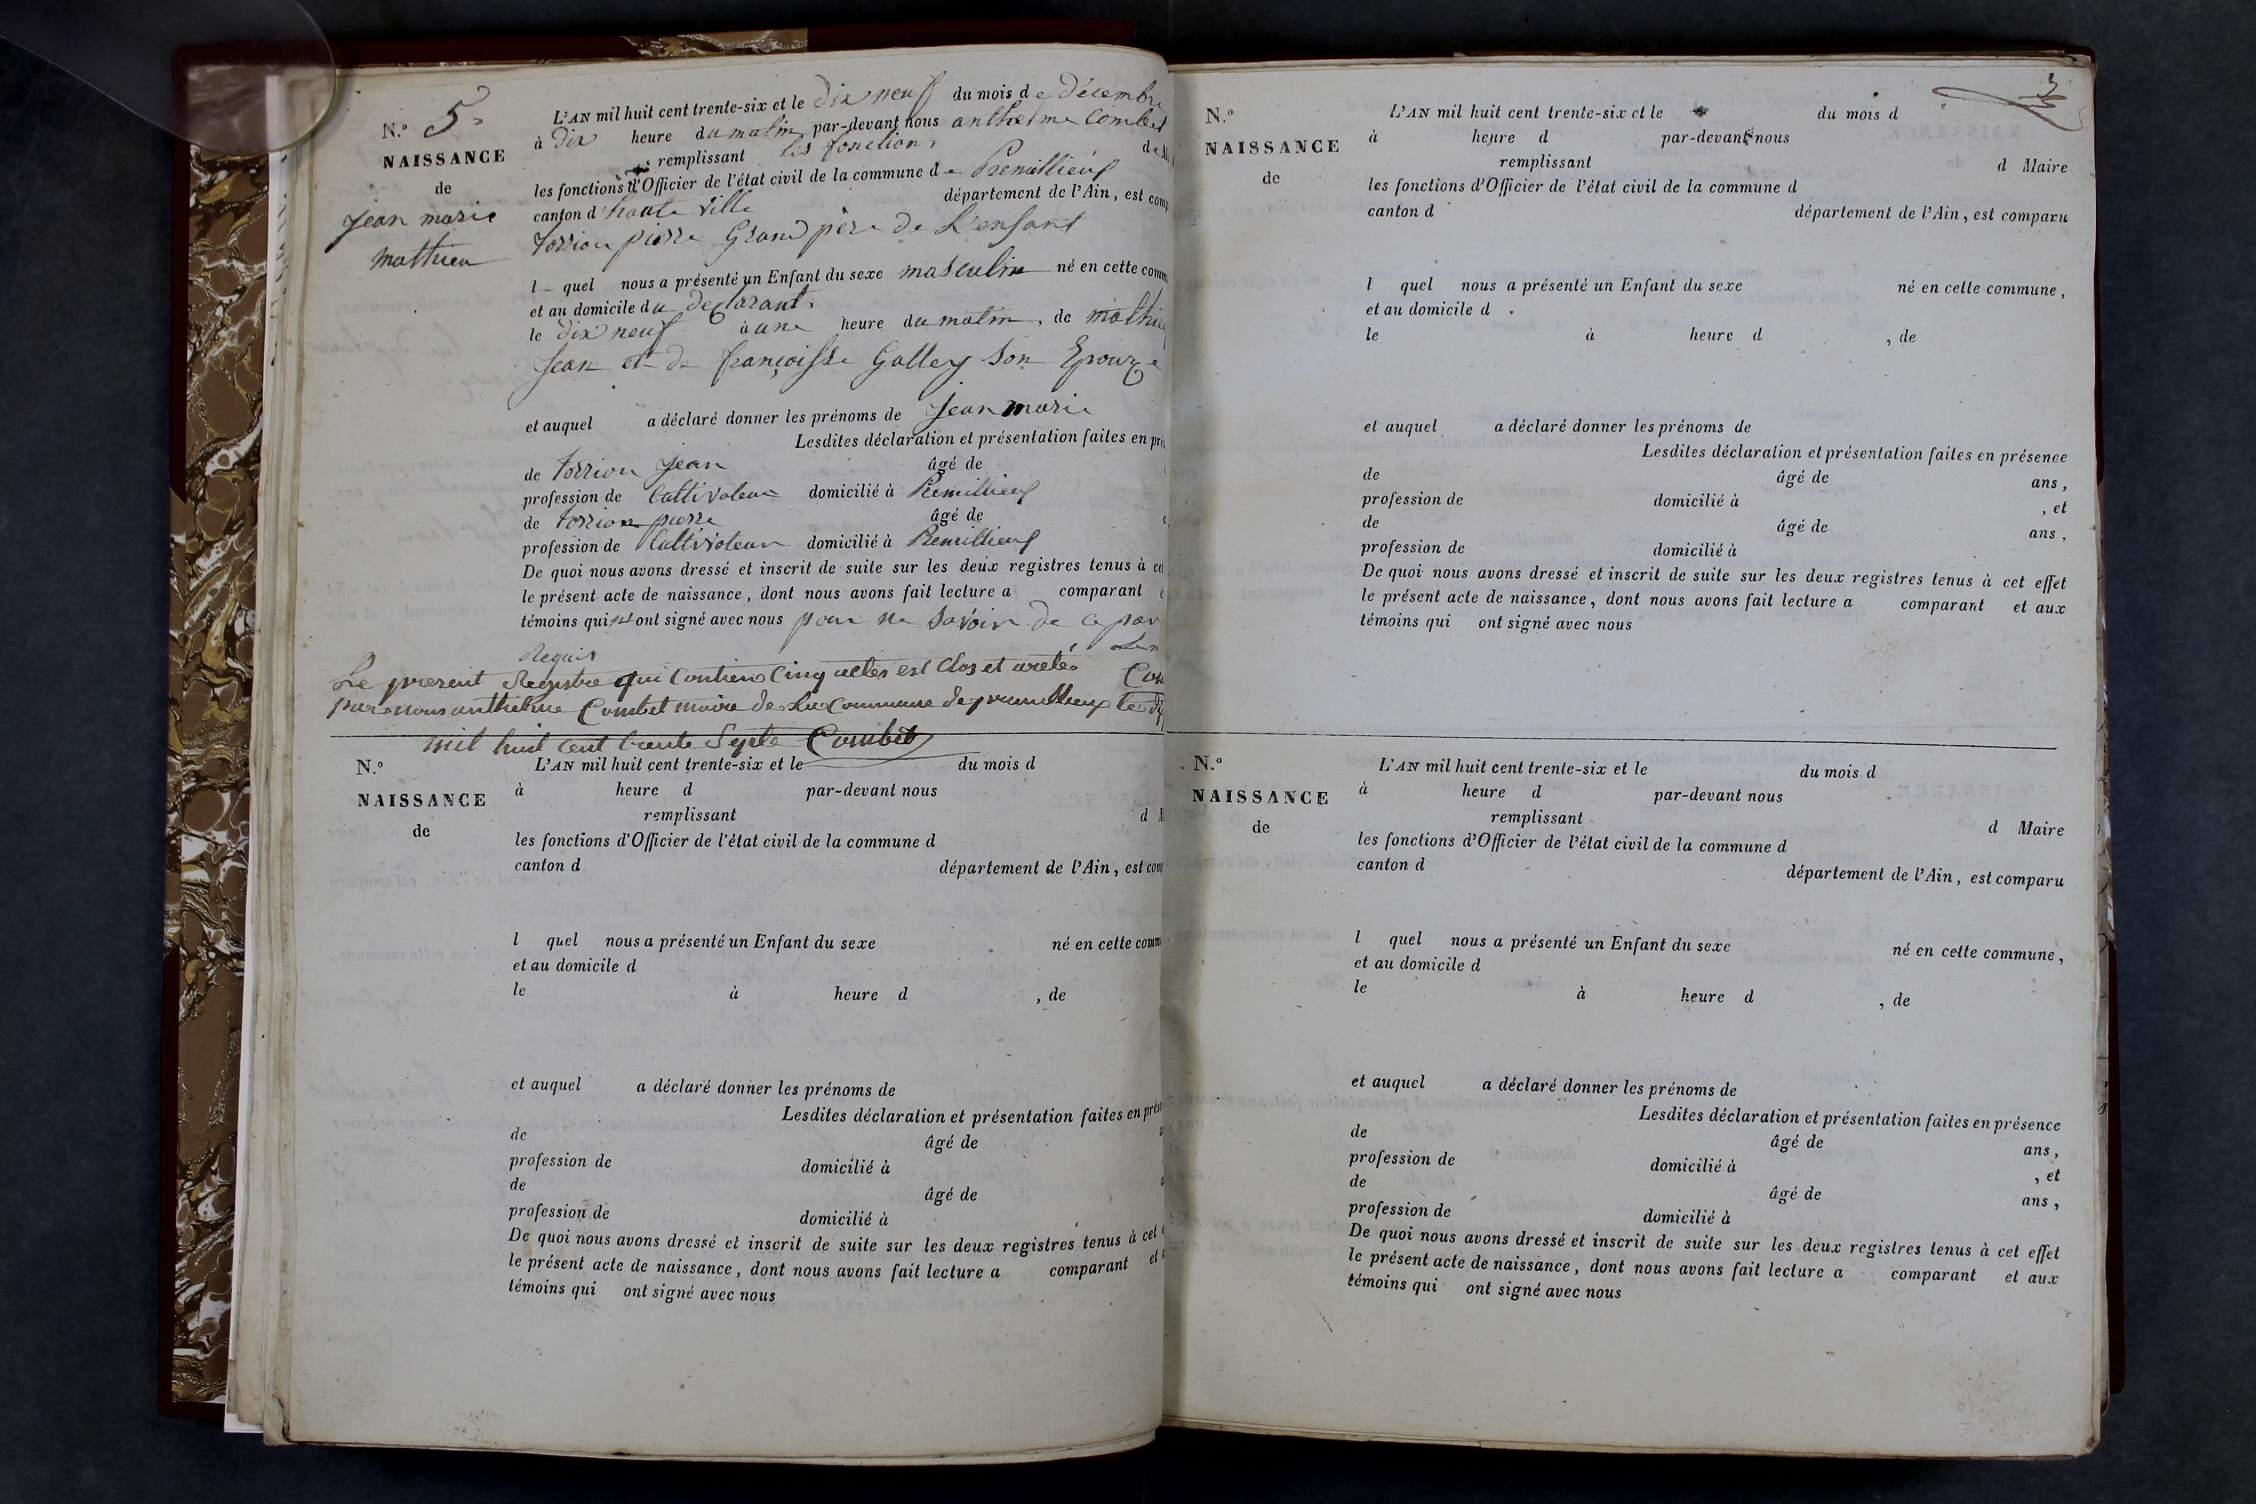 N.° 5
NAISSANCE
de
jean marie
mathieu
L'AN mil huit cent trente-six et le dix neuf du mois de décembre
à dix heure du matin par-devant nous anthelme Combet
remplissant les fonctions de
les fonctions d'Officier de l'état civil de la commune de Premillieux
canton d'haute ville département de l'Ain, est comp
torrion pierre Grand père de L'enfant
l quel nous a présenté un Enfant du sexe masculin né en cette comm
et au domicile du declarant.
le dix neuf à une heure du matin, de mathieu
Jean et de françoisse Galley son Epouze
et auquel a déclaré donner les prénoms de Jean marie
Lesdites déclaration et présentation faites en pré
de torrion jean âgé de
profession de Cultivateur domicilié à Premillieux
de torrion pierre âgé de
profession de Cultivateur domicilié à Premillieux
De quoi nous avons dressé et inscrit de suite sur les deux registres tenus à cet
le présent acte de naissance, dont nous avons fait lecture a comparant
témoins qui ont signé avec nous pour ne savoir de ce
Requis
Le present Registre qui Contien Cinq actes est Clos et areté
par nous anthelme Combet maire de La Commune de premillieux le
mil huit cent trente Septe Combet
N.°
NAISSANCE
de
L'AN mil huit cent trente-six et le du mois d
à heure d par-devant nous
remplissant d
les fonctions d'Officier de l'état civil de la commune d
canton d département de l'Ain, est com
l quel nous a présenté un Enfant du sexe né en cette comm
et au domicile d
le à heure d , de
et auquel a déclaré donner les prénoms de
Lesdites déclaration et présentation faites en prése
de âgé de
profession de domicilié à
de âgé de
profession de domicilié à
De quoi nous avons dressé et inscrit de suite sur les deux registres tenus à cet
le présent acte de naissance, dont nous avons fait lecture a comparant et
témoins qui ont signé avec nous
N.°
NAISSANCE
de
L'AN mil huit cent trente-six et le du mois d
à heure d par-devant nous
remplissant d Maire
les fonctions d'Officier de l'état civil de la commune d
canton d département de l'Ain, est comparu
l quel nous a présenté un Enfant du sexe né en cette commune,
et au domicile d
le à heure d , de
et auquel a déclaré donner les prénoms de
Lesdites déclaration et présentation faites en présence
de âgé de ans,
profession de domicilié à , et
de âgé de ans,
profession de domicilié à
De quoi nous avons dressé et inscrit de suite sur les deux registres tenus à cet effet
le présent acte de naissance, dont nous avons fait lecture a comparant et aux
témoins qui ont signé avec nous
N.°
NAISSANCE
de
L'AN mil huit cent trente-six et le du mois d
à heure d par-devant nous
remplissant d Maire
les fonctions d'Officier de l'état civil de la commune d
canton d département de l'Ain, est comparu
l quel nous a présenté un Enfant du sexe né en cette commune,
et au domicile d
le à heure d , de
et auquel a déclaré donner les prénoms de
Lesdites déclaration et présentation faites en présence
de âgé de ans,
profession de domicilié à , et
de âgé de ans,
profession de domicilié à
De quoi nous avons dressé et inscrit de suite sur les deux registres tenus à cet effet
le présent acte de naissance, dont nous avons fait lecture a comparant et aux
témoins qui ont signé avec nous